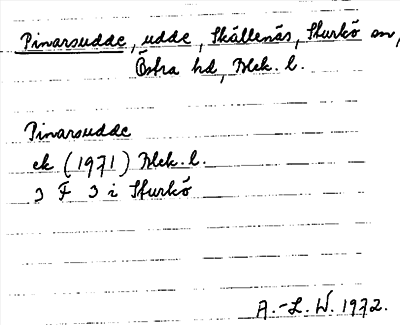 Pinarsudde, udde, Skällenäs, Sturkö sn,
Östra hd, Blek. l.
Pinarsudde
ek (1971) Blek. l.
3 F 3 i Sturkö
A.-L. W. 1972.